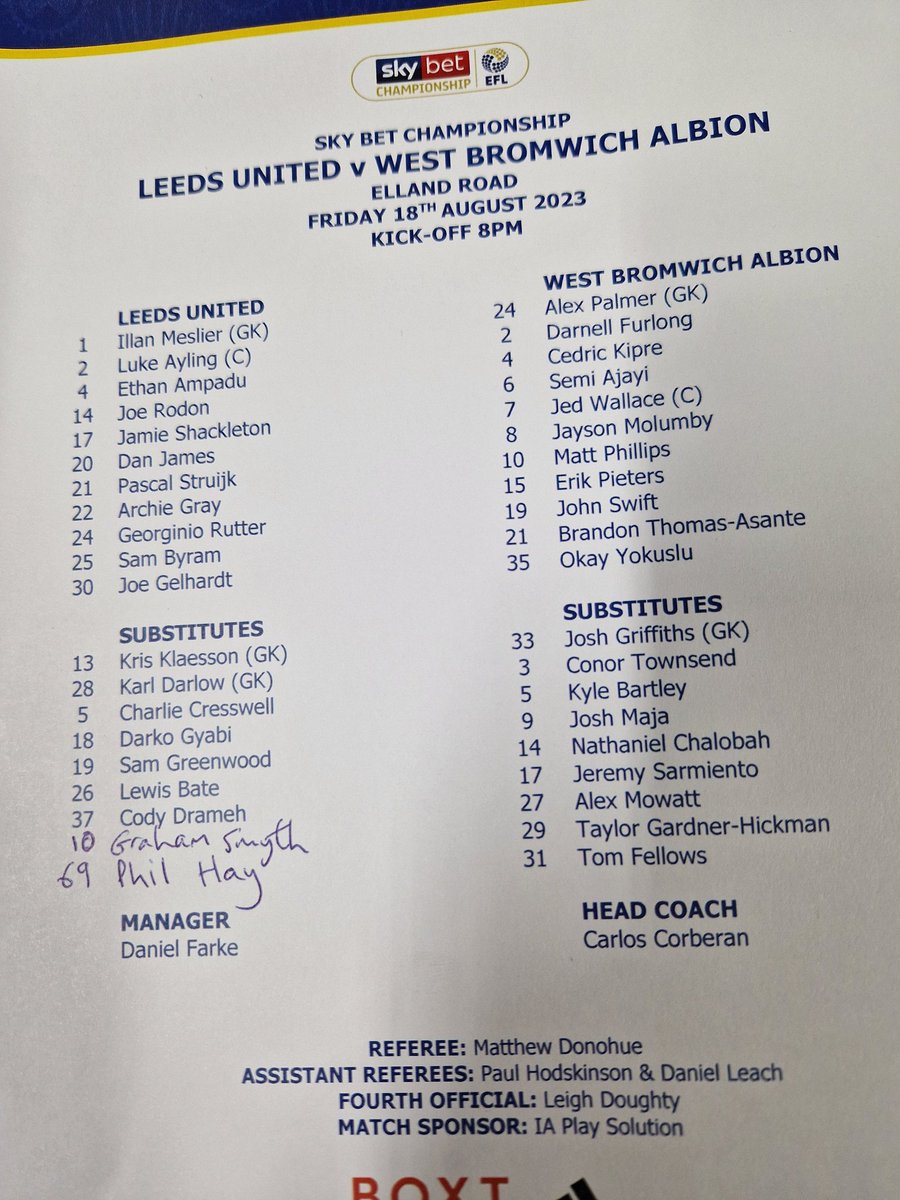 sky bet
CHAMPIONSHIP
EFL
SKY BET CHAMPIONSHIP
LEEDS UNITED v WEST BROMWICH ALBION
ELLAND ROAD
FRIDAY 18TH AUGUST 2023
KICK-OFF 8PM
LEEDS UNITED
1 Illan Meslier (GK)
2 Luke Ayling (C)
4 Ethan Ampadu
14 Joe Rodon
17 Jamie Shackleton
20 Dan James
21 Pascal Struijk
22 Archie Gray
24 Georginio Rutter
25 Sam Byram
30 Joe Gelhardt
SUBSTITUTES
13 Kris Klaesson (GK)
28 Karl Darlow (GK)
5 Charlie Cresswell
18 Darko Gyabi
19 Sam Greenwood
26 Lewis Bate
37 Cody Drameh
10 Graham Smyth
69 Phil Hay
MANAGER
Daniel Farke
WEST BROMWICH ALBION
24 Alex Palmer (GK)
2 Darnell Furlong
4 Cedric Kipre
6 Semi Ajayi
7 Jed Wallace (C)
8 Jayson Molumby
10 Matt Phillips
15 Erik Pieters
19 John Swift
21 Brandon Thomas-Asante
35 Okay Yokuslu
SUBSTITUTES
33 Josh Griffiths (GK)
3 Conor Townsend
5 Kyle Bartley
9 Josh Maja
14 Nathaniel Chalobah
17 Jeremy Sarmiento
27 Alex Mowatt
29 Taylor Gardner-Hickman
31 Tom Fellows
HEAD COACH
Carlos Corberan
REFEREE: Matthew Donohue
ASSISTANT REFEREES: Paul Hodskinson & Daniel Leach
FOURTH OFFICIAL: Leigh Doughty
MATCH SPONSOR: IA Play Solution
BOXT